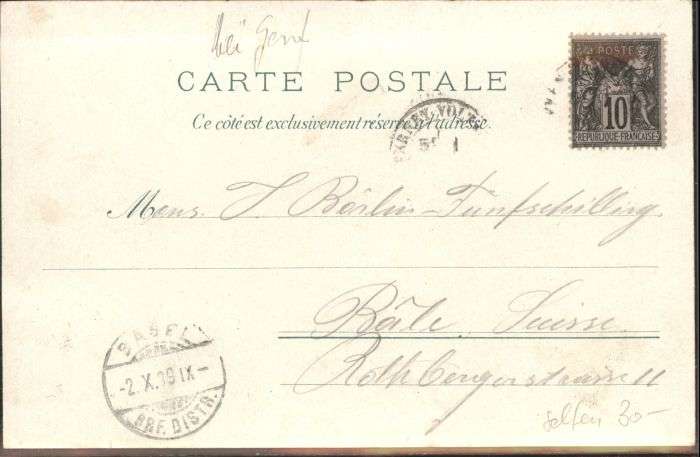 bei Genf
CARTE POSTALE
Ce côté est exclusivement réservé à l'adresse.
POSTE
10
RÉPUBLIQUE FRANÇAISE
FERNEY-VOLT
Mons. J. Bärlin-Fünfschilling.
Bâle. Suisse.
Rothbergerstrasse 11
BASEL
-2.X.99 IX-
BRF. DISTR.
selten 30-